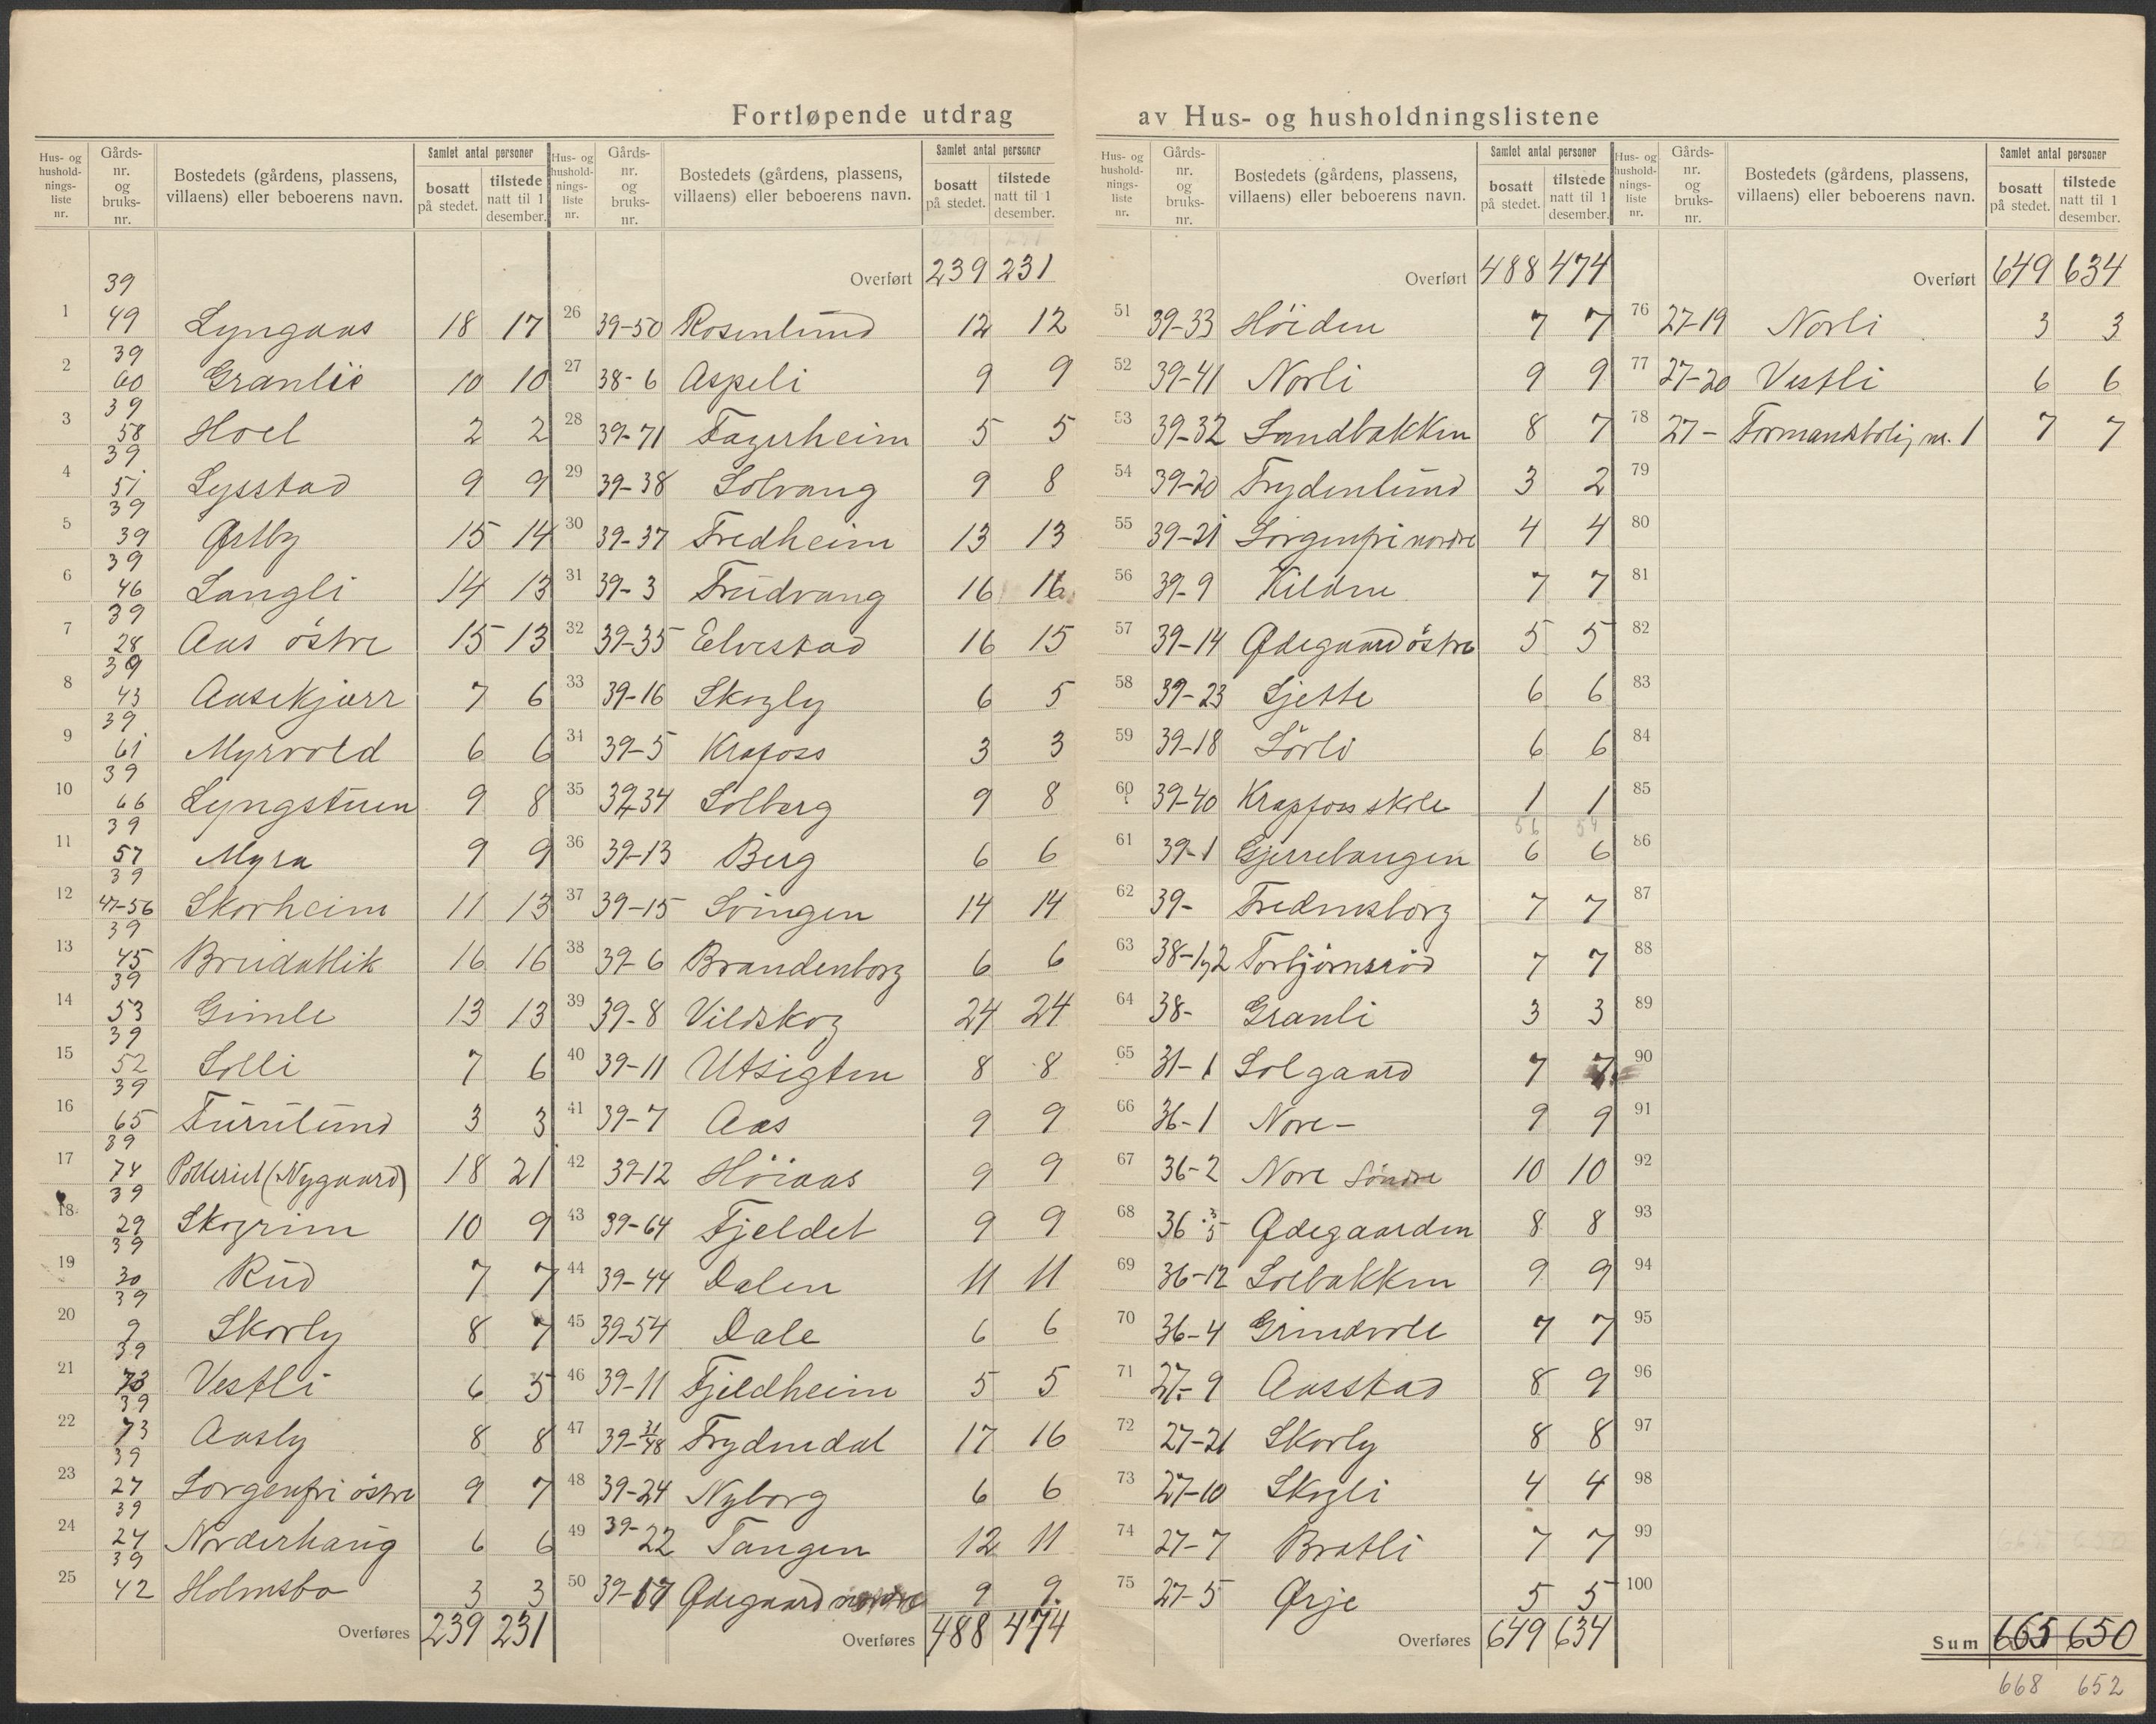 Fortløpende utdrag av Hus- og husholdningslistene
Hus- og husholdnings-liste nr. Gårds-nr. og bruks-nr. Bostedets (gårdens, plassens, villaens) eller beboerens navn. Samlet antal personer bosatt på stedet. tilstede natt til 1 desember.
1 39 49 Lyngaas 18 17
2 39 60 Granlie 10 10
3 39 58 Hoel 2 2
4 39 51 Lysstad 9 9
5 39 39 Østby 15 14
6 39 46 Langli 14 13
7 39 28 Aas östre 15 13
8 39 43 Aasekjærr 7 6
9 39 61 Myrvold 6 6
10 39 66 Lyngstuen 9 8
11 39 57 Myra 9 9
12 39 47-56 Skovheim 11 13
13 39 45 Breidablik 16 16
14 39 53 Gimle 13 13
15 39 52 Solli 7 6
16 39 65 Furulund 3 3
17 39 74 Potteriet (Nygaard) 18 21
18 39 29 Skogrim 10 9
19 39 30 Rud 7 7
20 39 9 Skovly 8 7
21 39 73 Vestli 6 5
22 39 73 Aasly 8 8
23 39 27 Sorgenfri östre 9 7
24 39 24 Norderhaug 6 6
25 39 42 Holmsbo 3 3
Overføres 239 231
Hus- og husholdnings-liste nr. Gårds-nr. og bruks-nr. Bostedets (gårdens, plassens, villaens) eller beboerens navn. Samlet antal personer bosatt på stedet. tilstede natt til 1 desember.
Overført 239 231
26 39-50 Rosenlund 12 12
27 38-6 Aspeli 9 9
28 39-71 Fagerheim 5 5
29 39-38 Solvang 9 8
30 39-37 Fredheim 13 13
31 39-3 Trudvang 16 16
32 39-35 Elvestad 16 15
33 39-16 Skogly 6 5
34 39-5 Krafoss 3 3
35 39-34 Solberg 9 8
36 39-13 Berg 6 6
37 39-15 Svingen 14 14
38 39-6 Brandenborg 6 6
39 39-8 Vildskog 24 24
40 39-11 Utsigten 8 8
41 39-7 Aas 9 9
42 39-12 Höiaas 9 9
43 39-64 Fjeldet 9 9
44 39-44 Dalen 11 11
45 39-54 Dale 6 6
46 39-11 Fjeldheim 5 5
47 39-31/48 Frydendal 17 16
48 39-24 Nyborg 6 6
49 39-22 Tangen 12 11
50 39-17 Ødegaard nordre 9 9
Overføres 488 474
Hus- og husholdnings-liste nr. Gårds-nr. og bruks-nr. Bostedets (gårdens, plassens, villaens) eller beboerens navn. Samlet antal personer bosatt på stedet. tilstede natt til 1 desember.
Overført 488 474
51 39-33 Höiden 7 7
52 39-41 Norli 9 9
53 39-32 Sandbakken 8 7
54 39-20 Frydenlund 3 2
55 39-21 Sorgenfri nordre 4 4
56 39-9 Kilden 7 7
57 39-14 Ødegaard östre 5 5
58 39-23 Sjette 6 6
59 39-18 Sörli 6 6
60 39-40 Krapfoss skole 1 1
56 54
61 39-1 Gjerrebaugen 6 6
62 39- Fredensborg 7 7
63 38-1,2 Torbjörnsröd 7 7
64 38- Granli 3 3
65 31-1 Solgaard 7 7
66 36-1 Nore- 9 9
67 36-2 Nore Söndre 10 10
68 36-3/5 Ødegaarden 8 8
69 36-12 Solbakken 9 9
70 36-4 Grindvold 7 7
71 27-9 Aasstad 8 9
72 27-21 Skovly 8 8
73 27-10 Skogli 4 4
74 27-7 Bratli 7 7
75 27-5 Ørje 5 5
Overføres 649 634
Hus- og husholdnings-liste nr. Gårds-nr. og bruks-nr. Bostedets (gårdens, plassens, villaens) eller beboerens navn. Samlet antal personer bosatt på stedet. tilstede natt til 1 desember.
Overført 649 634
76 27-19 Norli 3 3
77 27-20 Vestli 6 6
78 27- Formansbolig nr. 1 7 7
79
80
81
82
83
84
85
86
87
88
89
90
91
92
93
94
95
96
97
98
99
100
Sum 665 650
668 652